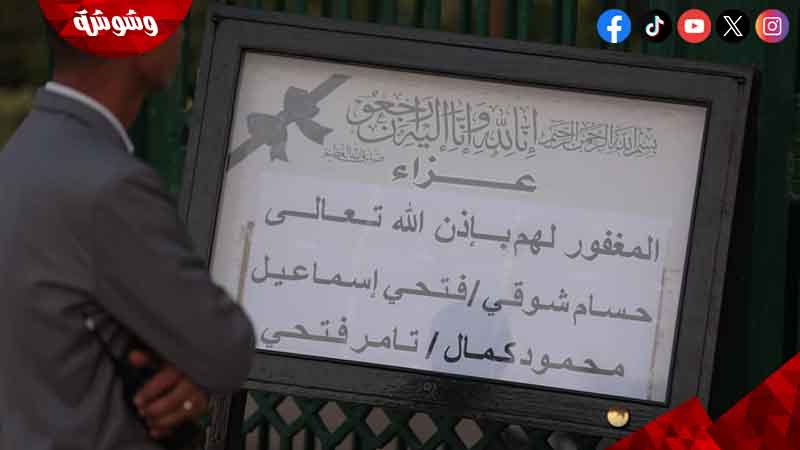 وشوشة
بسم الله الرحمن الرحيم
إنا لله وإنا إليه راجعون
صدق الله العظيم
عزاء
المغفور لهم بإذن الله تعالى
حسام شوقي / فتحي إسماعيل
محمود كمال / تامر فتحي